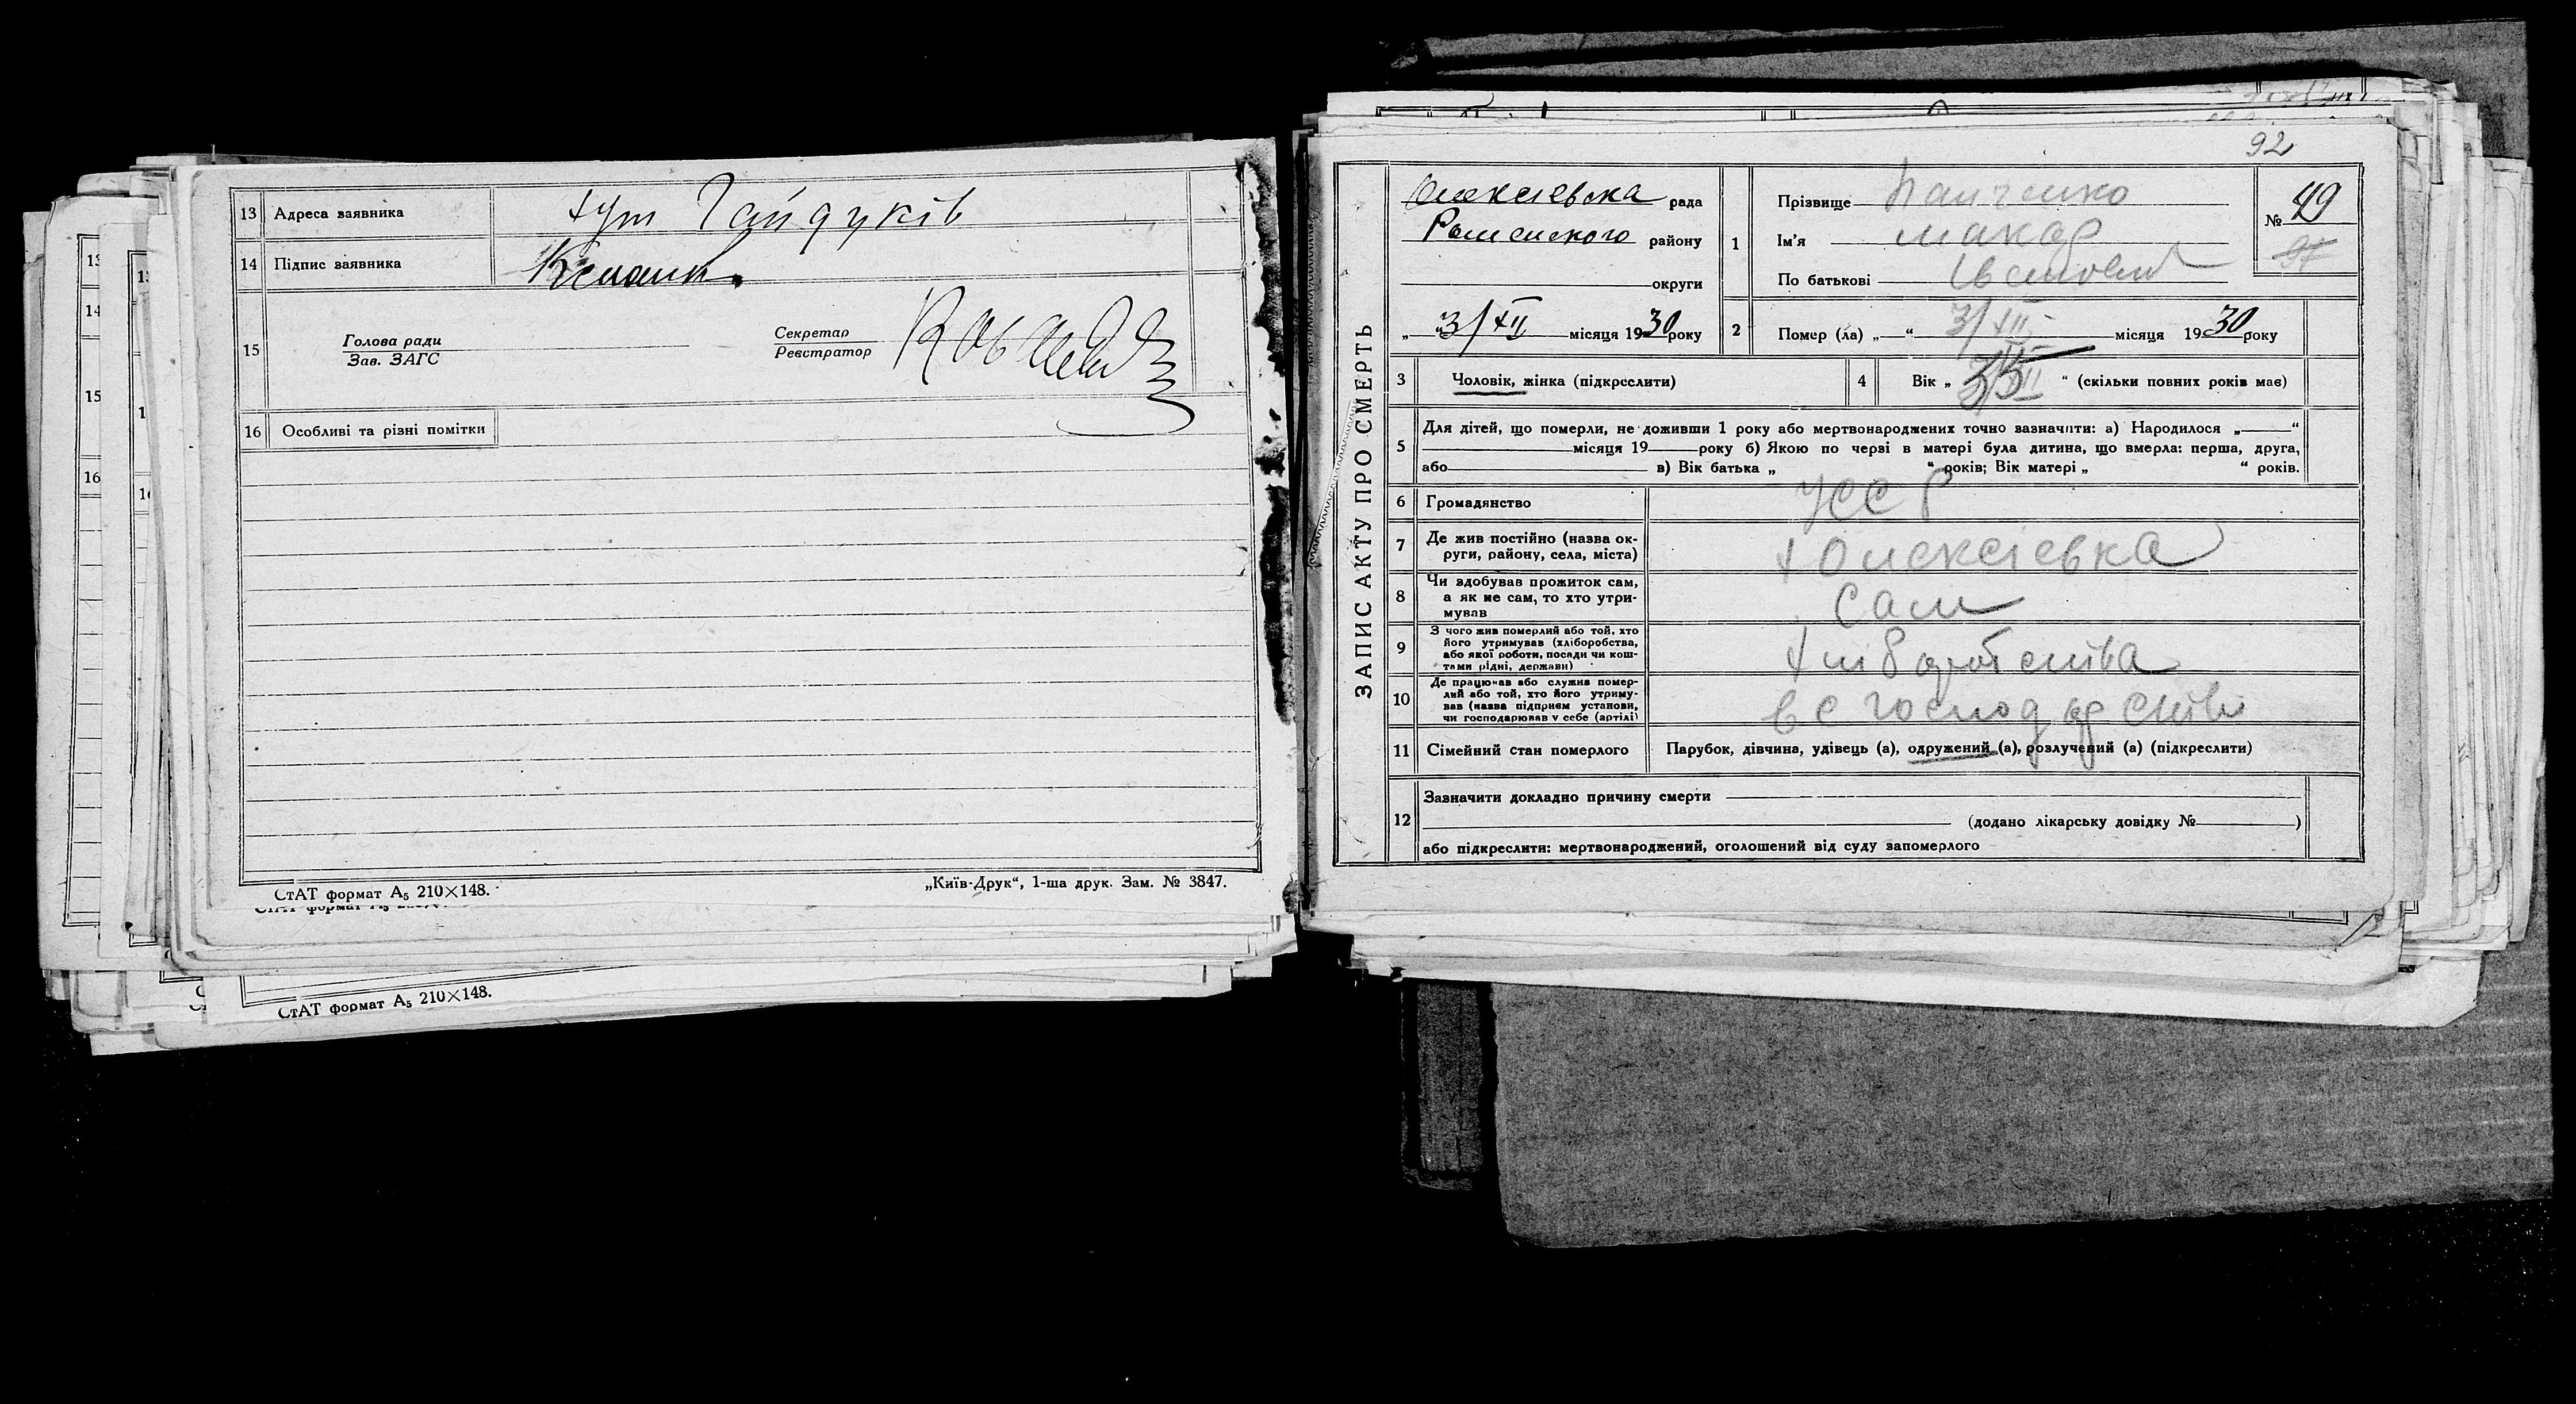 13 Адреса заявника хут Гайдуків
14 Підпис заявника
15 Голова ради
Зав. ЗАГС
Секретар
Реєстратор
16 Особливі та різні помітки
СтАТ формат А5 210×148.
„Київ-Друк“, 1-ша друк. Зам. № 3847.
СтАТ формат А5 210×148.
92
ЗАПИС АКТУ ПРО СМЕРТЬ
Олексіевска рада
Роменского району
округи
„ 3/XII місяця 1930 року
1 Прізвище Панченко
Ім'я макар
По батькові Іванович
№ 49
2 Помер (ла) „ “ 3/XII місяця 1930 року
3 Чоловік, жінка (підкреслити)
4 Вік „ “ (скільки повних років має)
5 Для дітей, що померли, не доживши 1 року або мертвонароджених точно зазначити: а) Народилося „ “
місяця 19 року б) Якою по черві в матері була дитина, що вмерла: перша, друга,
або в) Вік батька „ “ років; Вік матері „ “ років.
6 Громадянство УССР
7 Де жив постійно (назва ок-
руги, району, села, міста)
х Олексіевка
8 Чи здобував прожиток сам,
а як не сам, то хто утри-
мував
Сам
9 З чого жив померлий або той, хто
його утримував (хліборобства,
або якої роботи, посади чи кош-
тами рідні, держави)
10 Де працював або служив помер-
лий або той, хто його утриму-
вав (назва підприєм установи,
чи господарював у себе (артілі)
11 Сімейний стан померлого Парубок, дівчина, удівець (а), одружений (а), розлучений (а) (підкреслити)
12 Зазначити докладно причину смерти
(додано лікарську довідку № )
або підкреслити: мертвонароджений, оголошений від суду запомерлого